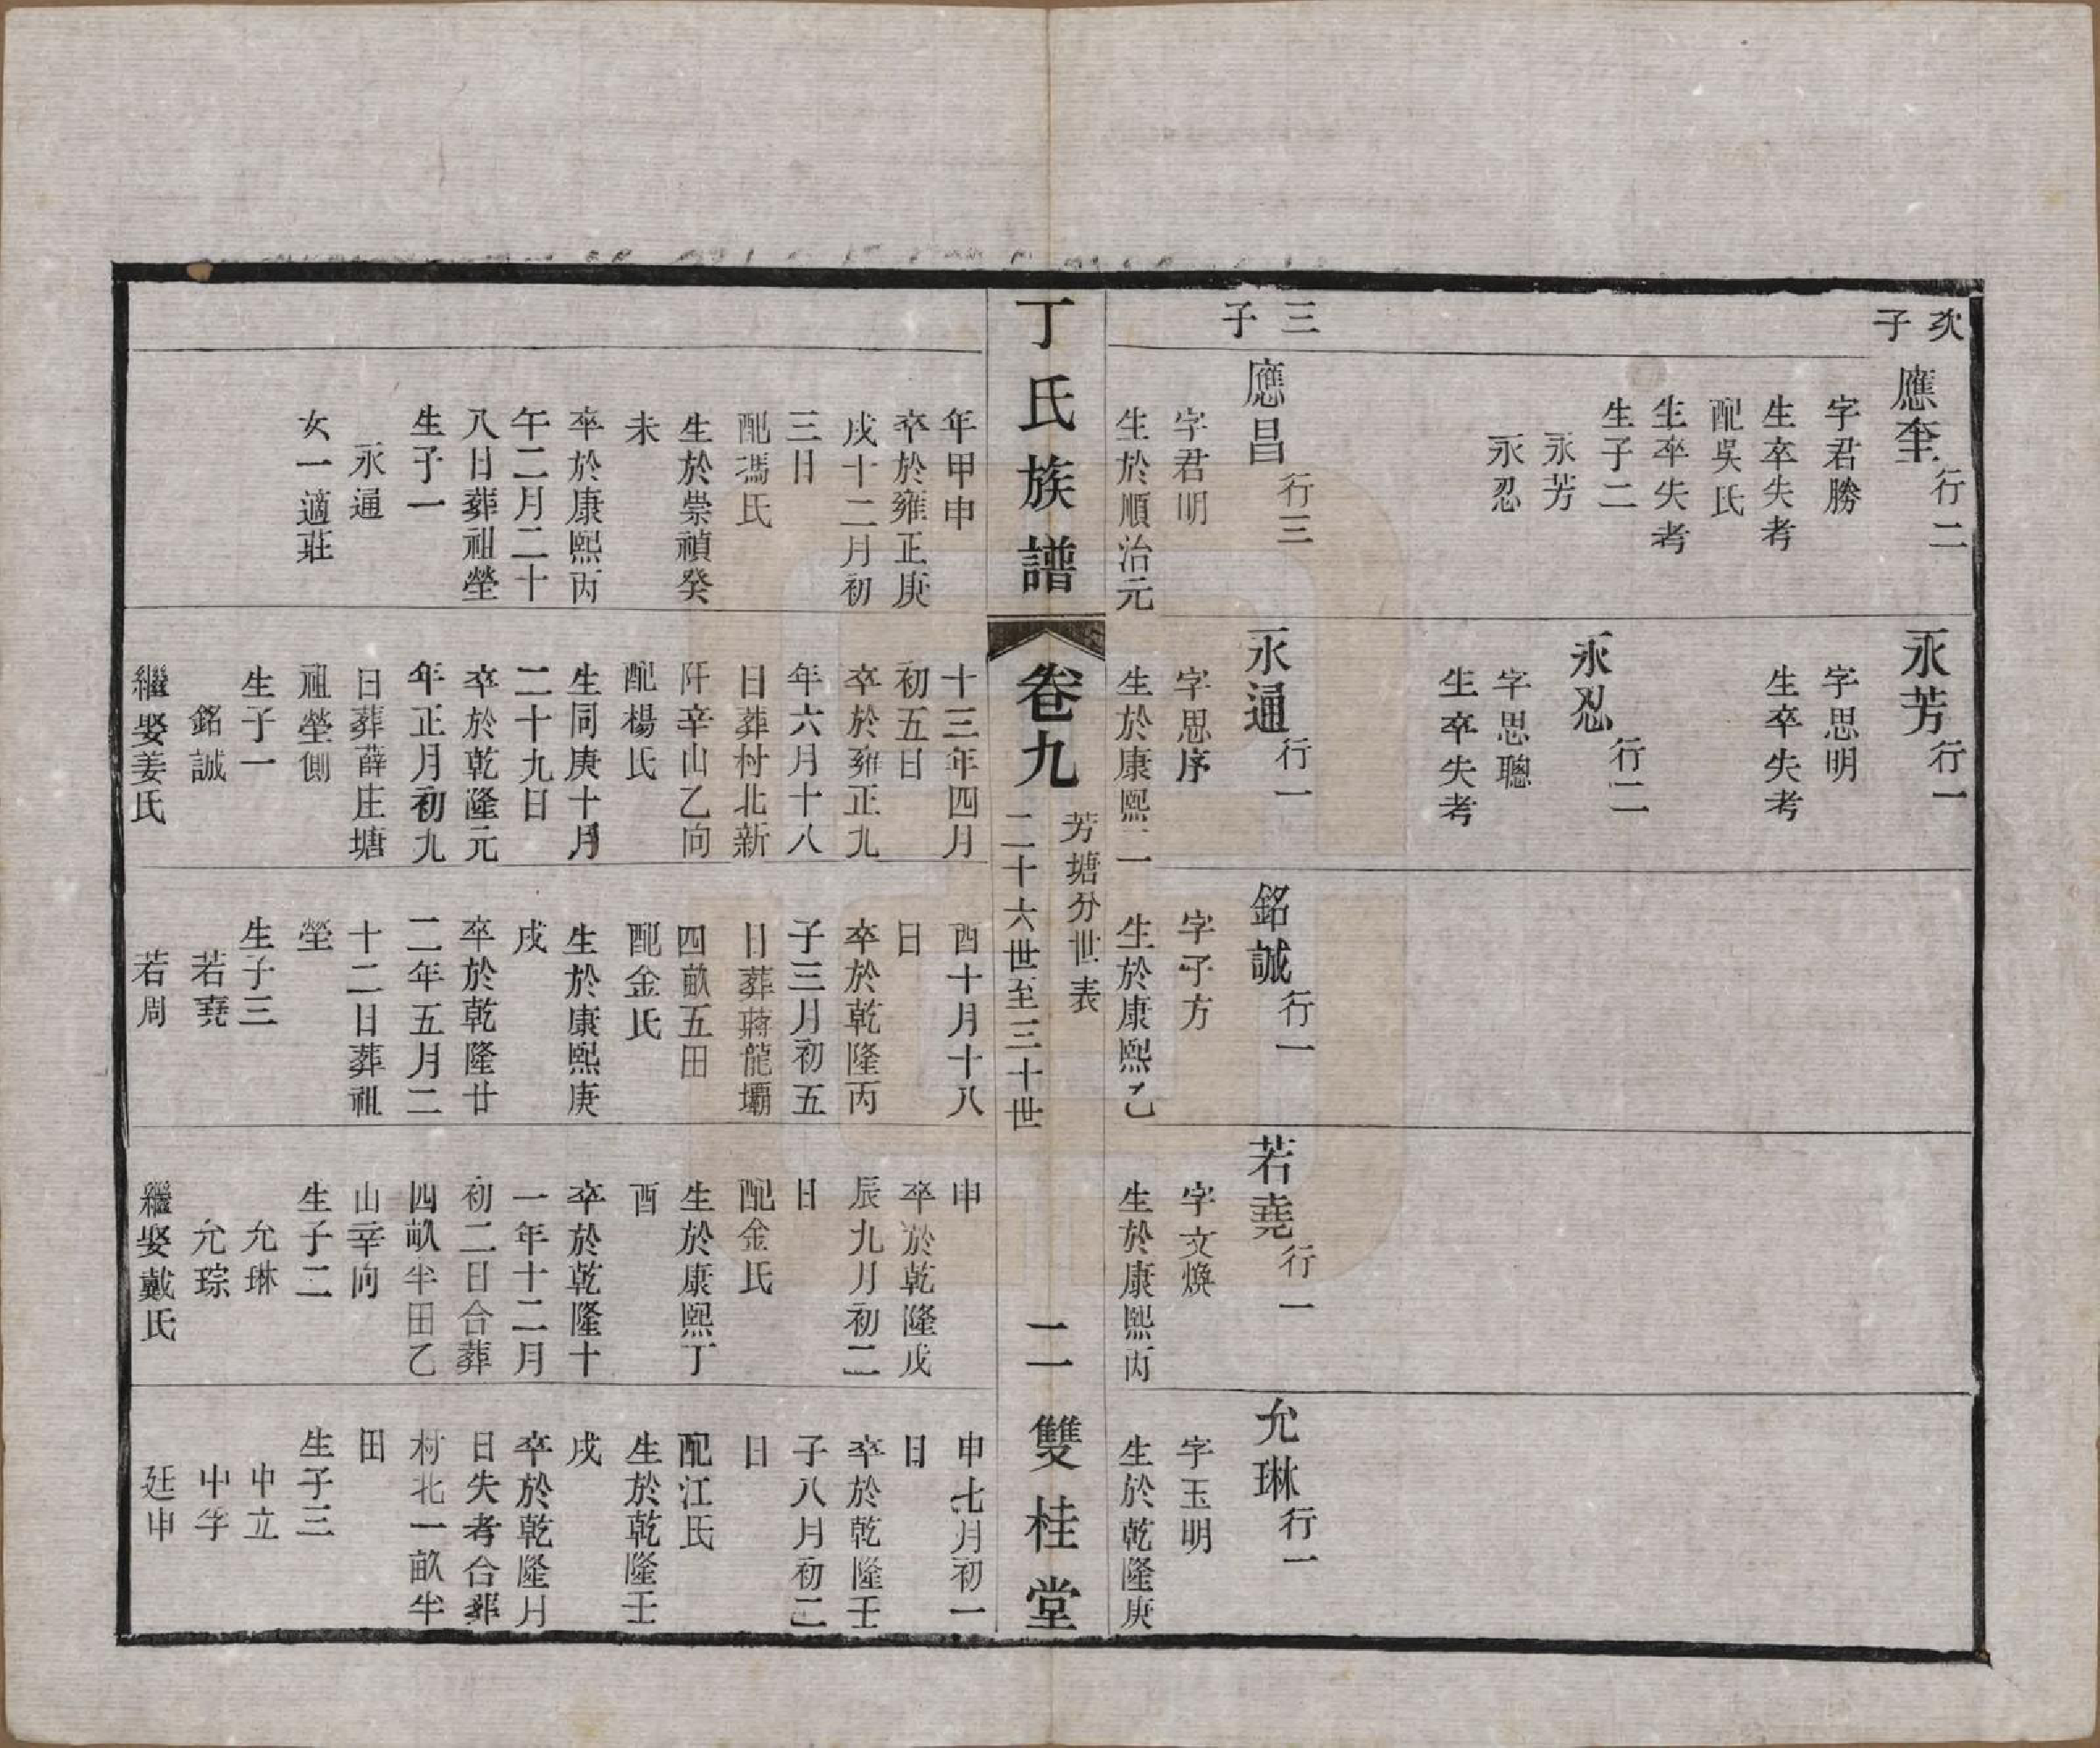 次子
應奎 行二
字君勝
生卒失考
配吳氏
生卒失考
生子二
永芳
永忍
三子
應昌 行三
字君明
生於順治元
永芳 行一
字思明
生卒失考
永忍 行二
字思聰
生卒失考
永通 行一
字思序
生於康熙二
銘誠 行一
字子方
生於康熙乙
若堯 行一
字文煥
生於康熙丙
允琳 行一
字玉明
生於乾隆庚
丁氏族譜
卷九
芳塘分世表
二十六世至三十世
二
雙桂堂
年甲申
卒於雍正庚
戌十二月初
三日
配馮氏
生於崇禎癸
未
卒於康熙丙
午二月二十
八日葬祖塋
生子一
永通
女一適莊
十三年四月
初五日
卒於雍正九
年六月十八
日葬村北新
阡辛山乙向
配楊氏
生同庚十月
二十九日
卒於乾隆元
年正月初九
日葬薛庄塘
祖塋側
生子一
銘誠
繼娶姜氏
酉十月十八
日
卒於乾隆丙
子三月初五
日葬蔣龍壩
四畝五田
配金氏
生於康熙庚
戌
卒於乾隆廿
二年五月二
十二日葬祖
塋
生子三
若堯
若周
申
卒於乾隆戊
辰九月初二
日
配金氏
生於康熙丁
酉
卒於乾隆十
一年十二月
初二日合葬
四畝半田乙
山辛向
生子二
允琳
允琮
繼娶戴氏
申七月初一
日
卒於乾隆壬
子八月初二
日
配江氏
生於乾隆壬
戌
卒於乾隆月
日失考合葬
村北一畝半
田
生子三
中立
中孚
廷申